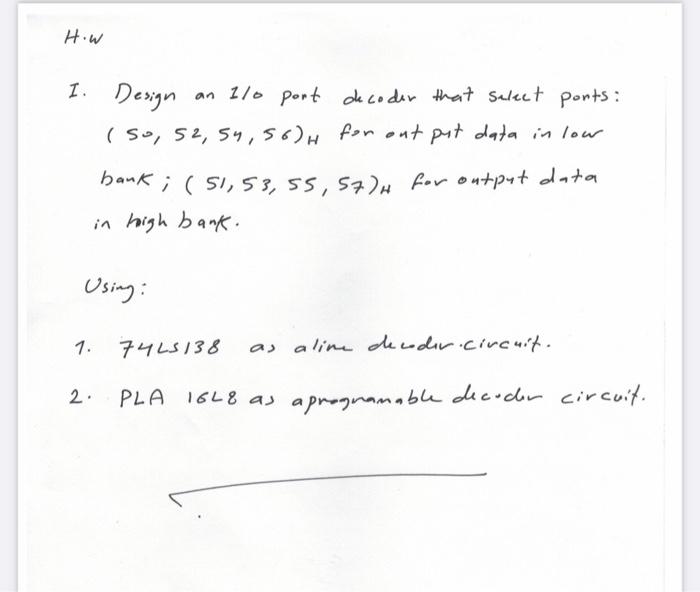 H.W
I. Design an I/o port decoder that select ports:
(50, 52, 54, 56)H for output data in low
bank; (51, 53, 55, 57)H for output data
in high bank.
Using:
1. 74LS138 as aline decoder circuit.
2. PLA 16L8 as aprogramable decoder circuit.